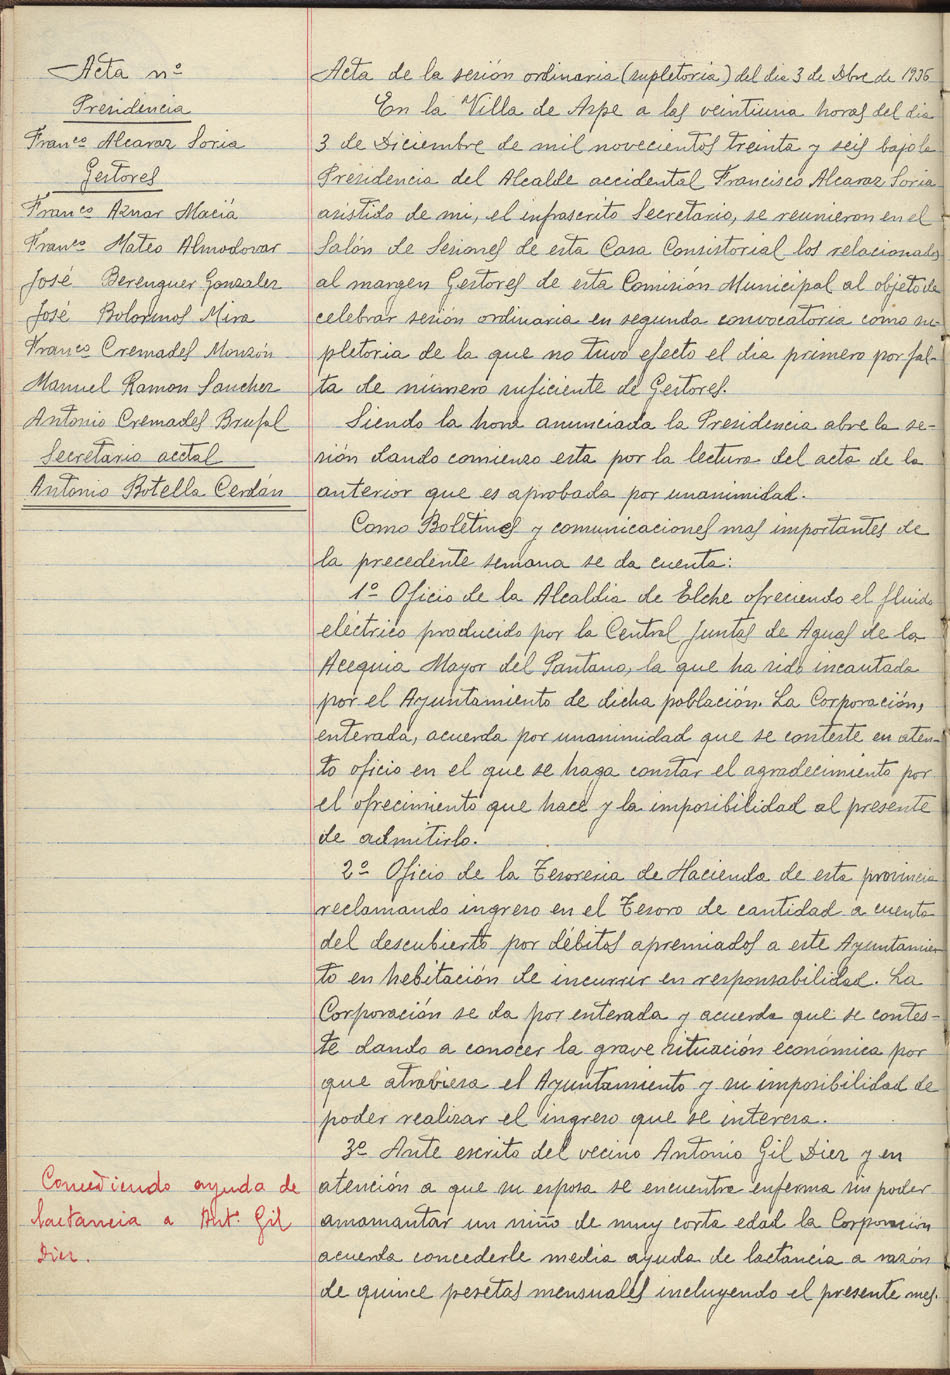 Acta nº
Presidencia
Franco Alcaraz Soria
Gestores
Franco Aznar Maciá
Franco Mateo Almodovar
José Berenguer Gonzalez
José Botorinos Mira
Franco Cremades Monzón
Manuel Ramon Sanchez
Antonio Cremades Brufal
Secretario acctal
Antonio Botella Cerdán
Concediendo ayuda de
lactancia a Antº Gil
Diez.
Acta de la sesión ordinaria (supletoria) del dia 3 de Dbre de 1936
En la Villa de Aspe a las veintiuna horas del dia
3 de Diciembre de mil novecientos treinta y seis bajo la
Presidencia del Alcalde accidental Francisco Alcaraz Soria
asistido de mi, el infrascrito Secretario, se reunieron en el
Salón de Sesiones de esta Casa Consistorial los relacionados
al margen Gestores de esta Comisión Municipal al objeto de
celebrar sesión ordinaria en segunda convocatoria como su-
pletoria de la que no tuvo efecto el dia primero por fal-
ta de número suficiente de Gestores.
Siendo la hora anunciada la Presidencia abre la se-
sión dando comienzo esta por la lectura del acta de la
anterior que es aprobada por unanimidad.
Como Boletines y comunicaciones mas importantes de
la precedente semana se da cuenta:
1º Oficio de la Alcaldia de Elche ofreciendo el fluido
eléctrico producido por la Central Juntas de Aguas de la
Acequia Mayor del Pantano, la que ha sido incautada
por el Ayuntamiento de dicha población. La Corporación,
enterada, acuerda por unanimidad que se conteste en aten-
to oficio en el que se haga constar el agradecimiento por
el ofrecimiento que hace y la imposibilidad al presente
de admitirlo.
2º Oficio de la Tesoreria de Hacienda de esta provincia
reclamando ingreso en el Tesoro de cantidad a cuenta
del descubierto por débitos apremiados a este Ayuntamien-
to en hebitación de incurrir en responsabilidad. La
Corporación se da por enterada y acuerda que se contes-
te dando a conocer la grave situación económica por
que atrabiesa el Ayuntamiento y su imposibilidad de
poder realizar el ingreso que se interesa.
3º Ante escrito del vecino Antonio Gil Diez y en
atención a que su esposa se encuentra enferma sin poder
amamantar un niño de muy corta edad la Corporación
acuerda concederle media ayuda de lactancia a razón
de quince pesetas mensuales incluyendo el presente mes.